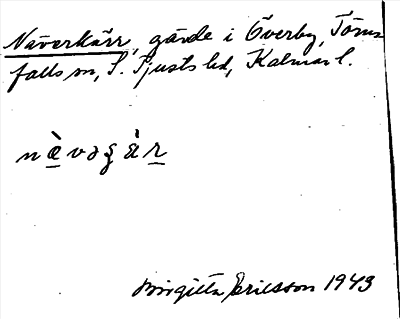 Näverkärr, gärde i Överby, Törns-
falls sn, S. Tjusts hd, Kalmar l.
nævəgär
Birgitta Ericsson 1943